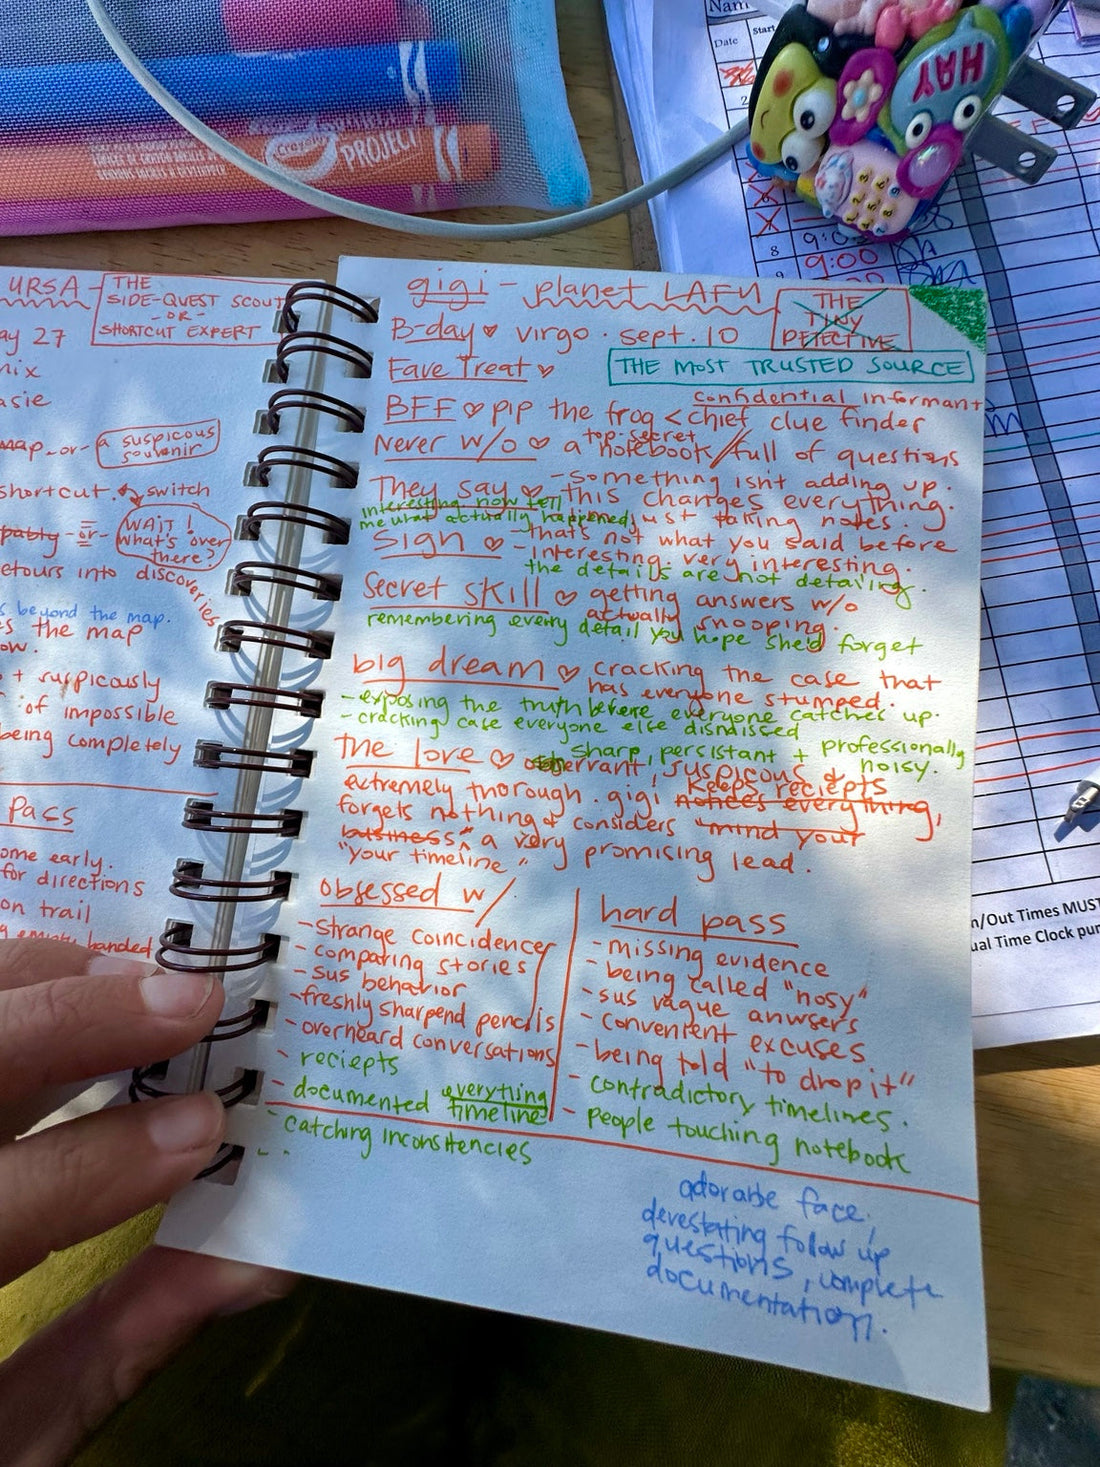 Crayola
PROJECT
Nam
Date
Start
HAY
8
9:00
n/Out Times MUST
ual Time Clock pun
URSA -
THE
SIDE-QUEST SCOUT
-OR-
SHORTCUT EXPERT
ay 27
nix
asie
map -or- a suspicous
souvenir
shortcut. switch
pably -or- WAIT!
What's over
there?
etours into discoveries
s beyond the map.
es the map
ow.
+ suspicously
of impossible
being completely
Pass
ome early.
for directions
on trail
g empty handed
gigi - planet LAFU
THE
TINY
DETECTIVE
B-day ♥ virgo · sept. 10
Fave Treat ♥
THE MOST TRUSTED SOURCE
confidential informant
BFF ♡ pip the frog < chief clue finder
top-secret
Never w/o ♡ a notebook / full of questions
They say ♡ - something isn't adding up.
- this changes everything.
interesting. now tell
me what actually happened. just taking notes.
Sign ♡ - that's not what you said before
- interesting. very interesting.
the details are not detailing.
Secret skill ♡ getting answers w/o
actually snooping.
remembering every detail you hope she'd forget
big dream ♡ cracking the case that
has everyone stumped.
- exposing the truth before everyone catches up.
- cracking case everyone else dismissed
the love ♡ sharp, persistant + professionally
noisy.
observant, suspicous &
extremely thorough. gigi notices everything,
keeps reciepts
forgets nothing & considers "mind your
business" a very promising lead.
"your timeline"
obsessed w/
- strange coincidences
- comparing stories
- sus behavior
- freshly sharpend pencils
- overheard conversations
- reciepts
- documented everything
timeline
- catching inconsitencies
hard pass
- missing evidence
- being called "nosy"
- sus vague anwsers
- convenient excuses
- being told "to drop it"
- contradictory timelines.
- people touching notebook
adorable face,
devestating follow up
questions, complete
documentation.